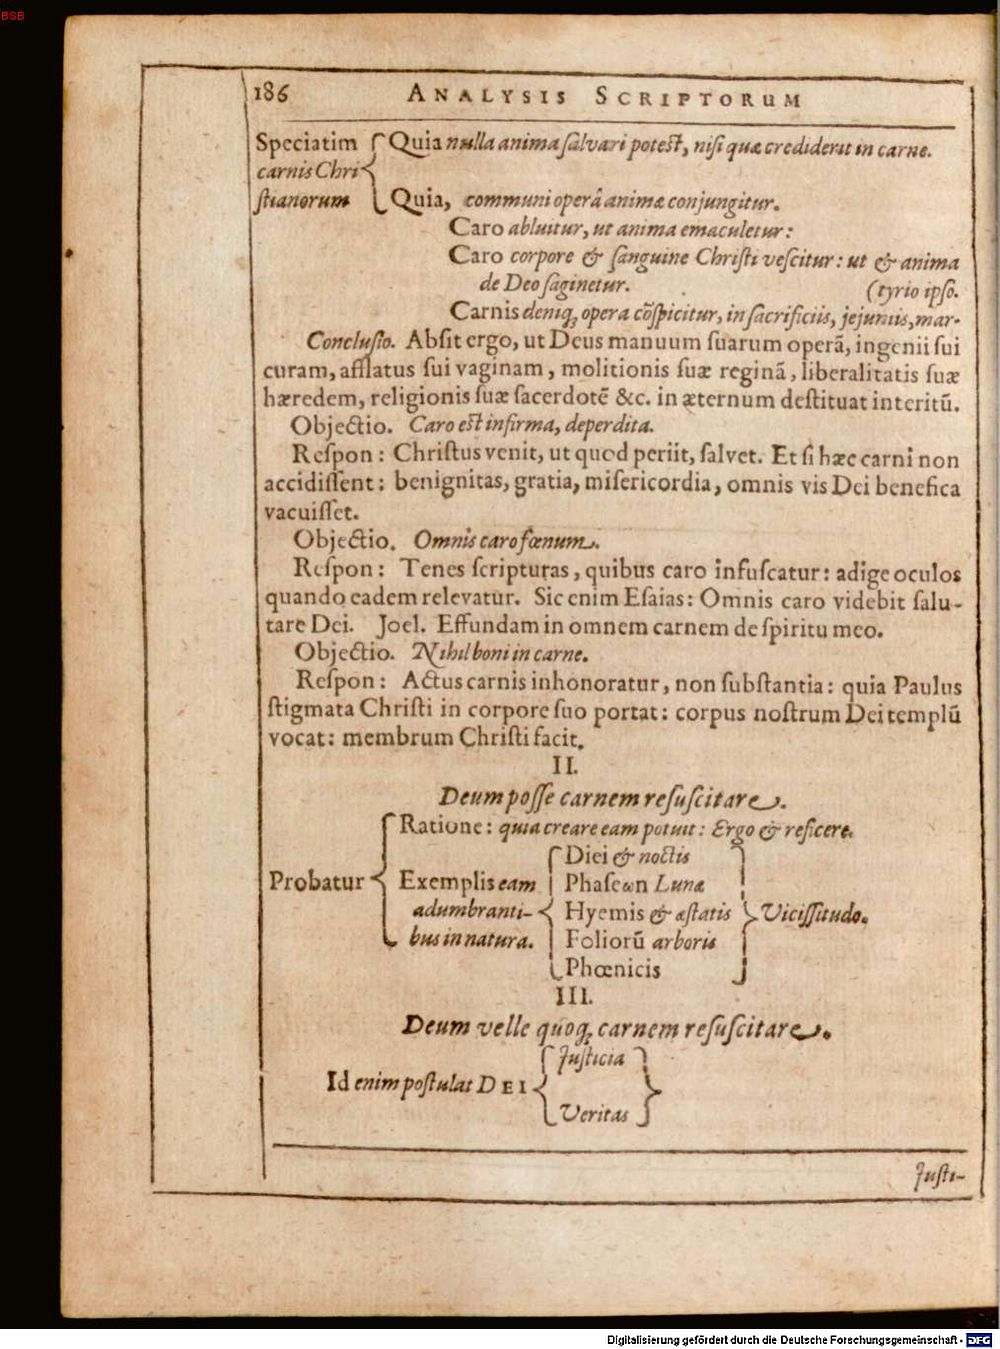 BSB
186 ANALYSIS SCRIPTORUM
Speciatim Quia nulla anima ſalvari poteſt, niſi quæ crediderit in carne.
carnis Chri
ſtianorum Quia, communi operâ animæ conjungitur.
Caro abluitur, ut anima emaculetur:
Caro corpore & ſanguine Chriſti veſcitur: ut & anima
de Deo ſaginetur. (tyrio ipſo.
Carnis deniq; opera cõſpicitur, in ſacrificiis, jejuniis, mar-
Concluſio. Abſit ergo, ut Deus manuum ſuarum operã, ingenii ſui
curam, afflatus ſui vaginam, molitionis ſuæ reginã, liberalitatis ſuæ
hæredem, religionis ſuæ ſacerdotẽ &c. in æternum deſtituat interitũ.
Objectio. Caro eſt infirma, deperdita.
Reſpon: Chriſtus venit, ut quod periit, ſalvet. Et ſi hæc carni non
accidiſſent: benignitas, gratia, miſericordia, omnis vis Dei benefica
vacuiſſet.
Objectio. Omnis caro fœnum.
Reſpon: Tenes ſcripturas, quibus caro infuſcatur: adige oculos
quando eadem relevatur. Sic enim Eſaias: Omnis caro videbit ſalu-
tare Dei. Joel. Effundam in omnem carnem de ſpiritu meo.
Objectio. Nihil boni in carne.
Reſpon: Actus carnis inhonoratur, non ſubſtantia: quia Paulus
ſtigmata Chriſti in corpore ſuo portat: corpus noſtrum Dei templũ
vocat: membrum Chriſti facit.
II.
Deum poſſe carnem reſuſcitare.
Ratione: quia creare eam potuit: Ergo & reficere.
Diei & noctis
Probatur Exemplis eam Phaſeωn Lunæ
adumbranti- Hyemis & æſtatis Viciſſitudo.
bus in natura. Foliorũ arboris
Phœnicis
III.
Deum velle quoq; carnem reſuſcitare.
Juſticia
Id enim poſtulat DEI
Veritas
Juſti-
Digitalisierung gefördert durch die Deutsche Forschungsgemeinschaft - DFG